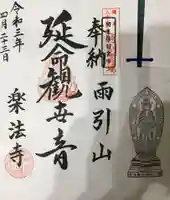 奉納
雨引山
延命観世音
楽法寺
令和三年
四月二十三日